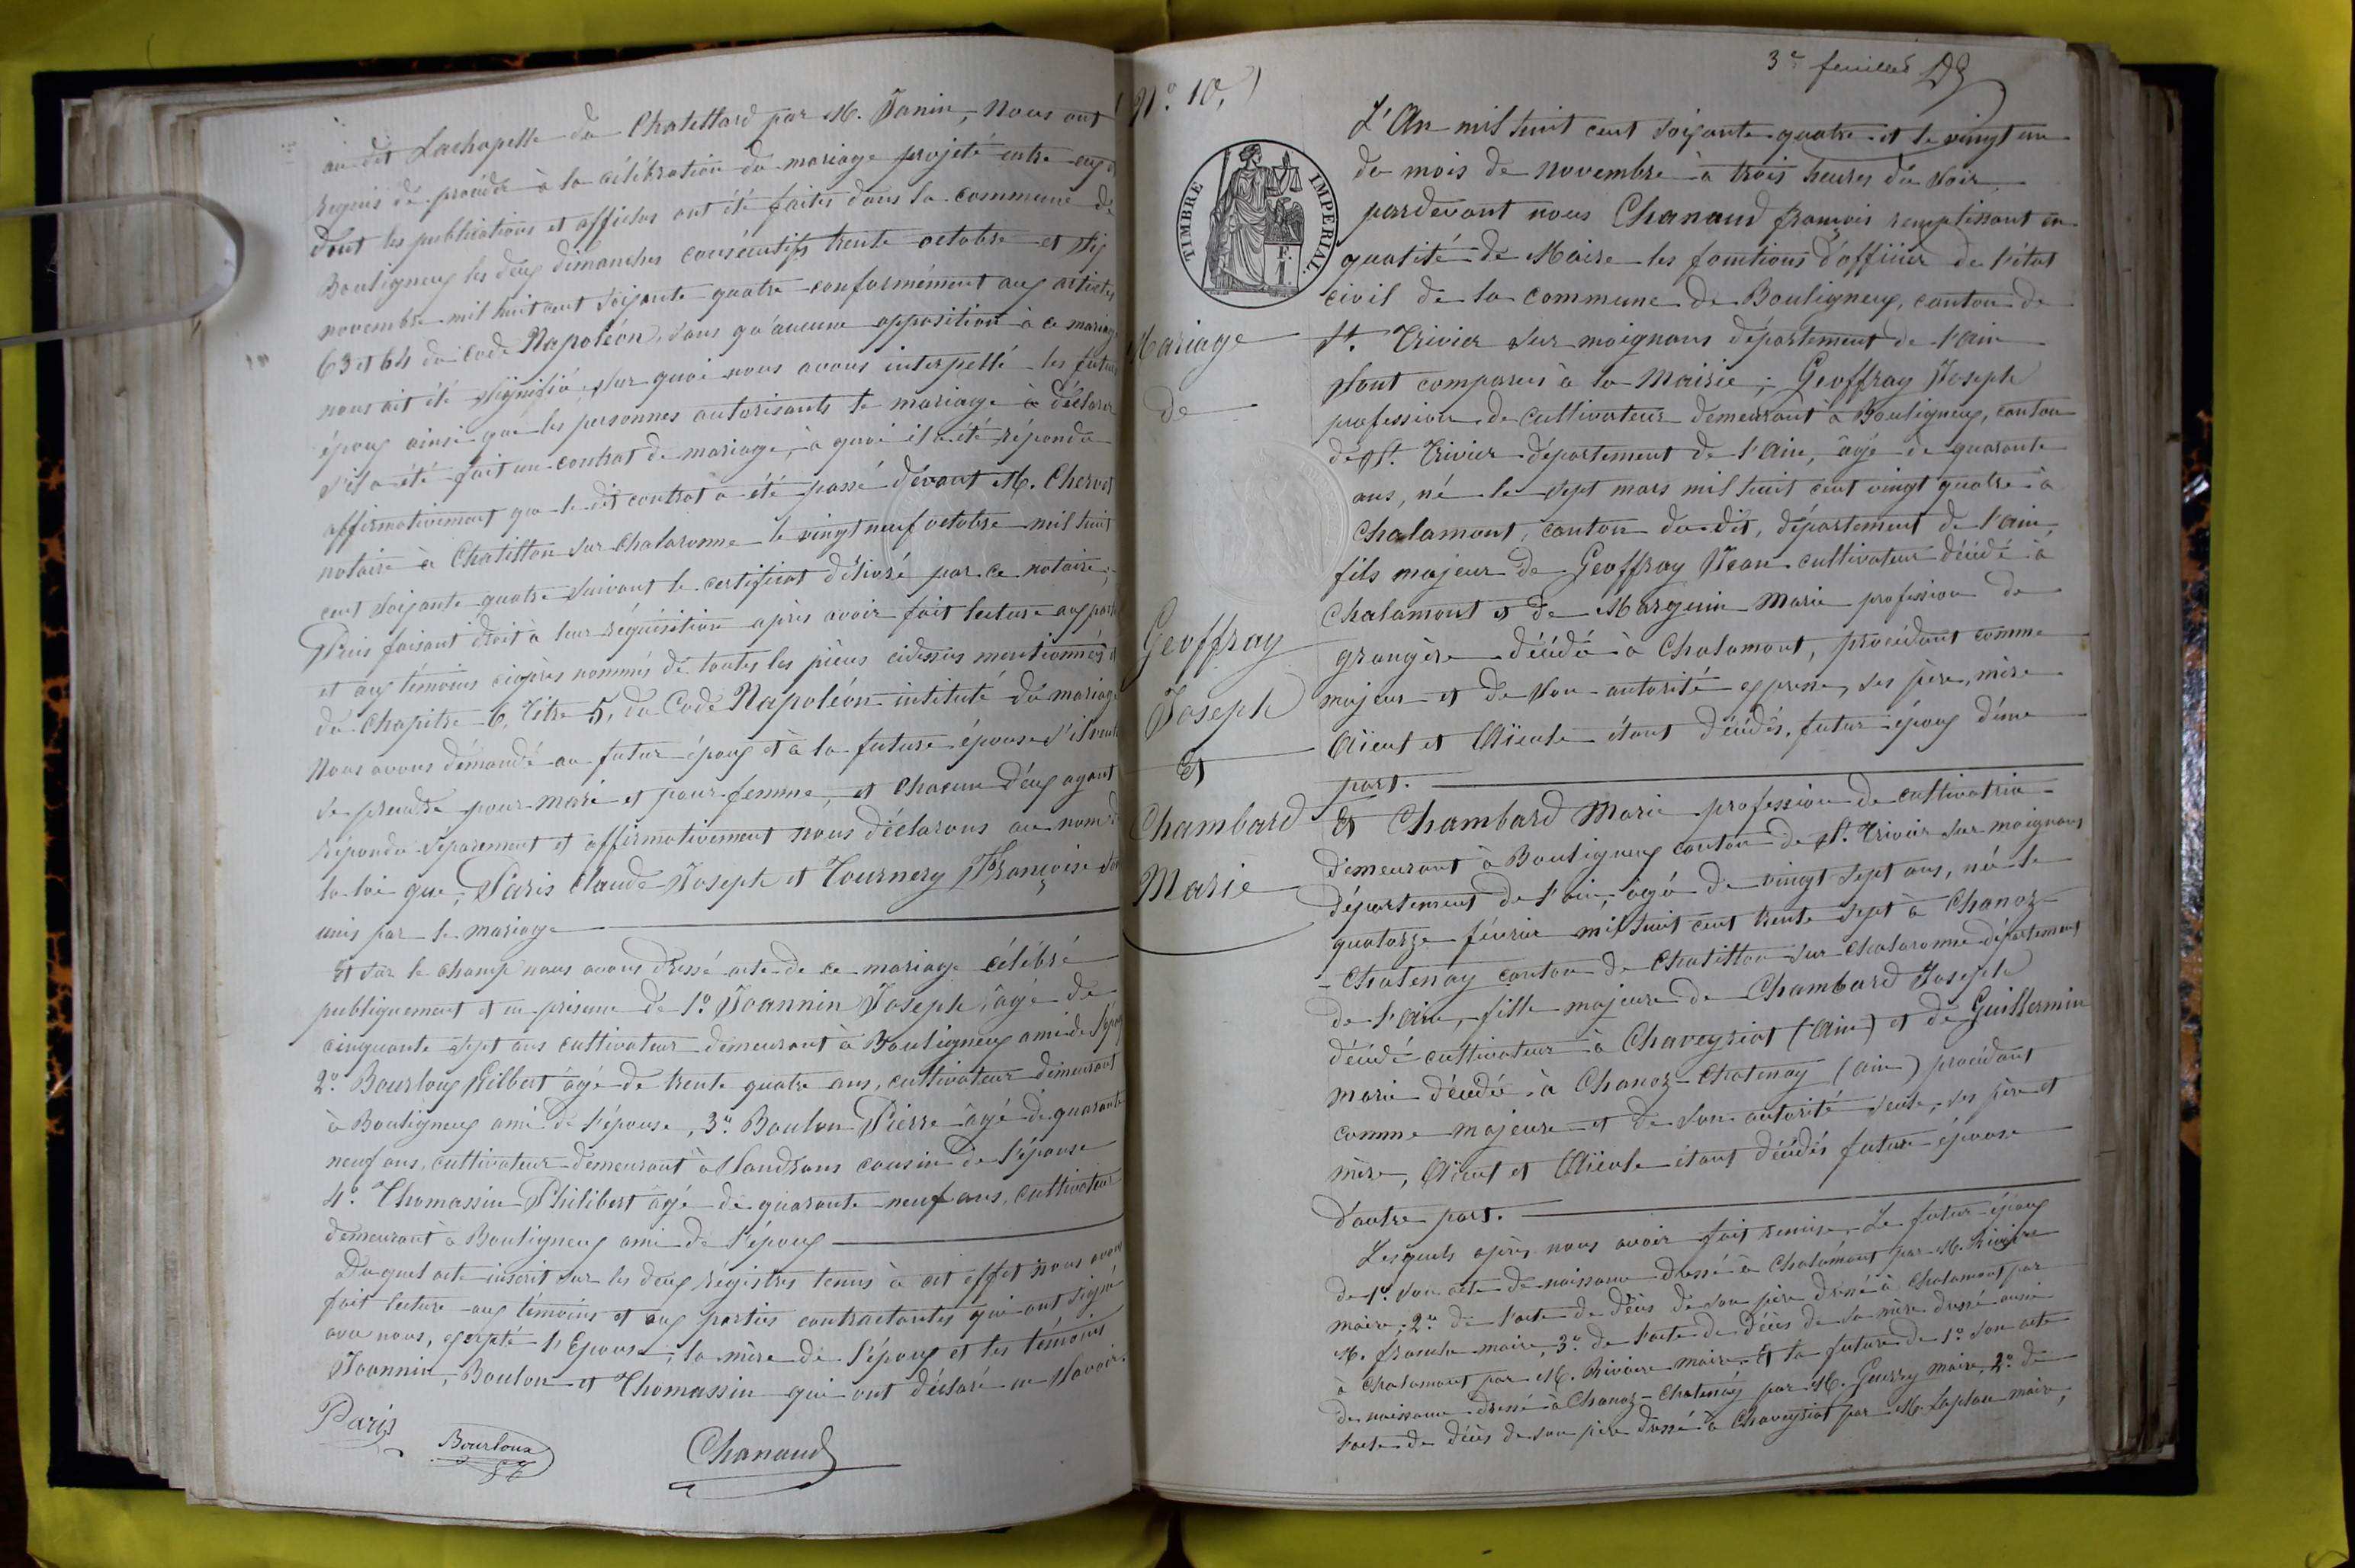 au dit Lachapelle du Chatellard par M. Janin, Nous ont
requis de procéder à la célébration du mariage projeté entre eux
dont les publications et affiches ont été faites dans la commune de
Bouligneux les deux dimanches consécutifs trente octobre et six
novembre mil huit cent soixante quatre conformément aux articles
63 et 64 du Code Napoléon, sans qu'aucune opposition à ce mariage
nous ait été signifié, sur quoi nous avons interpellé les futurs
époux ainsi que les personnes autorisants le mariage à déclarer
s'il a été fait un contrat de mariage, à quoi il a été répondu
affirmativement que le dit contrat a été passé devant M. Chervet
notaire à Chatillon sur Chalaronne le vingt neuf octobre mil huit
cent soixante quatre suivant le certificat délivré par ce notaire;
Puis faisant droit à leur réquisition après avoir fait lecture aux parties
et aux témoins ciaprès nommés de toutes les pièces cidessus mentionnés et
du chapitre 6, titre 5, du Code Napoléon intitulé du mariage
Nous avons demandé au futur époux et à la future épouse s'il veulent
se prendre pour mari et pour femme, et chacun d'eux ayant
répondu séparement et affirmativement nous déclarons au nom de
la loi que, Paris Claude Joseph et Tournery Françoise sont
unis par le mariage
Et sur le champ nous avons dressé acte de ce mariage célébré
publiquement et en présence de 1º Joannin Joseph, âgé de
cinquante sept ans cultivateur demeurant à Bouligneux ami de l'époux
2º Bourloux Gilbert âgé de trente quatre ans, cultivateur demeurant
à Bouligneux ami de l'épouse, 3º Boulon Pierre âgé de quarante
neuf ans, cultivateur demeurant à Sandrans cousin de l'épouse
4º Thomassin Philibert âgé de quarante neuf ans, cultivateur
demeurant à Bouligneux ami de l'époux
Duquel acte inscrit sur les deux régistres tenus à cet effet nous avons
fait lecture aux témoins et aux parties contractantes qui ont signé
avec nous, excepté l'Epouse, la mère de l'époux et les témoins
Joannin, Boulon et Thomassin qui ont déclaré ne savoir.
Paris
Bourloux
Chanaud
3e feuillet
Nº 10,
TIMBRE IMPERIAL
Mariage
de
Geoffray
Joseph
Et
Chambard
Marie
L'An mil huit cent soixante quatre et le vingt un
du mois de novembre à trois heures du soir,
pardevant nous Chanaud françois remplissant en
qualité de Maire les fonctions d'officier de l'état
civil de la commune de Bouligneux, canton de
St. Trivier sur moignans département de l'ain
sont comparus à la Mairie; Geoffray Joseph
profession de cultivateur demeurant à Bouligneux, canton
de St. Trivier département de l'Ain, âgé de quarante
ans, né le sept mars mil huit cent vingt quatre à
Chalamont, canton du dit, département de l'ain,
fils majeur de Geoffray Jean cultivateur décédé à
Chalamont et de Marguin Marie profession de
grangère décédé à Chalamont, procédant comme
majeur et de son autorité expresse, ses père, mère
Aïeul et Aïeule étant décédés, futur époux d'une
part.
Et Chambard Marie profession de cultivatrice
demeurant à Bouligneux canton de St. Trivier sur moignans
département de l'ain, âgé de vingt sept ans, né le
quatorze février mil huit cent trente sept à Chanoz-
-Chatenay canton de Chatillon sur Chalaronne département
de l'Ain, fille majeure de Chambard Joseph
décédé cultivateur à Chaveyriat (Ain) et de Guillermin
Marie décédée à Chanoz-Chatenay (ain) procédant
comme majeure et de son autorité seule, ses père et
mère, Aïeul et Aïeule étant décédés future épouse
d'autre part.
Lesquels après nous avoir fait remise, Le futur époux
de 1º son acte de naissance dressé à Chalamont par M. Rivoire
maire, 2º de l'acte de décès de son père dressé à Chalamont par
M. maire, 3º de l'acte de décès de sa mère dressé aussi
à Chalamont par M. Rivoire maire, Et la future de 1º son acte
de naissance dressé à Chanoz-Chatenay par M. Guerry maire, 2º de
l'acte de décès de son père dressé à Chaveyriat par M. Laplace maire,